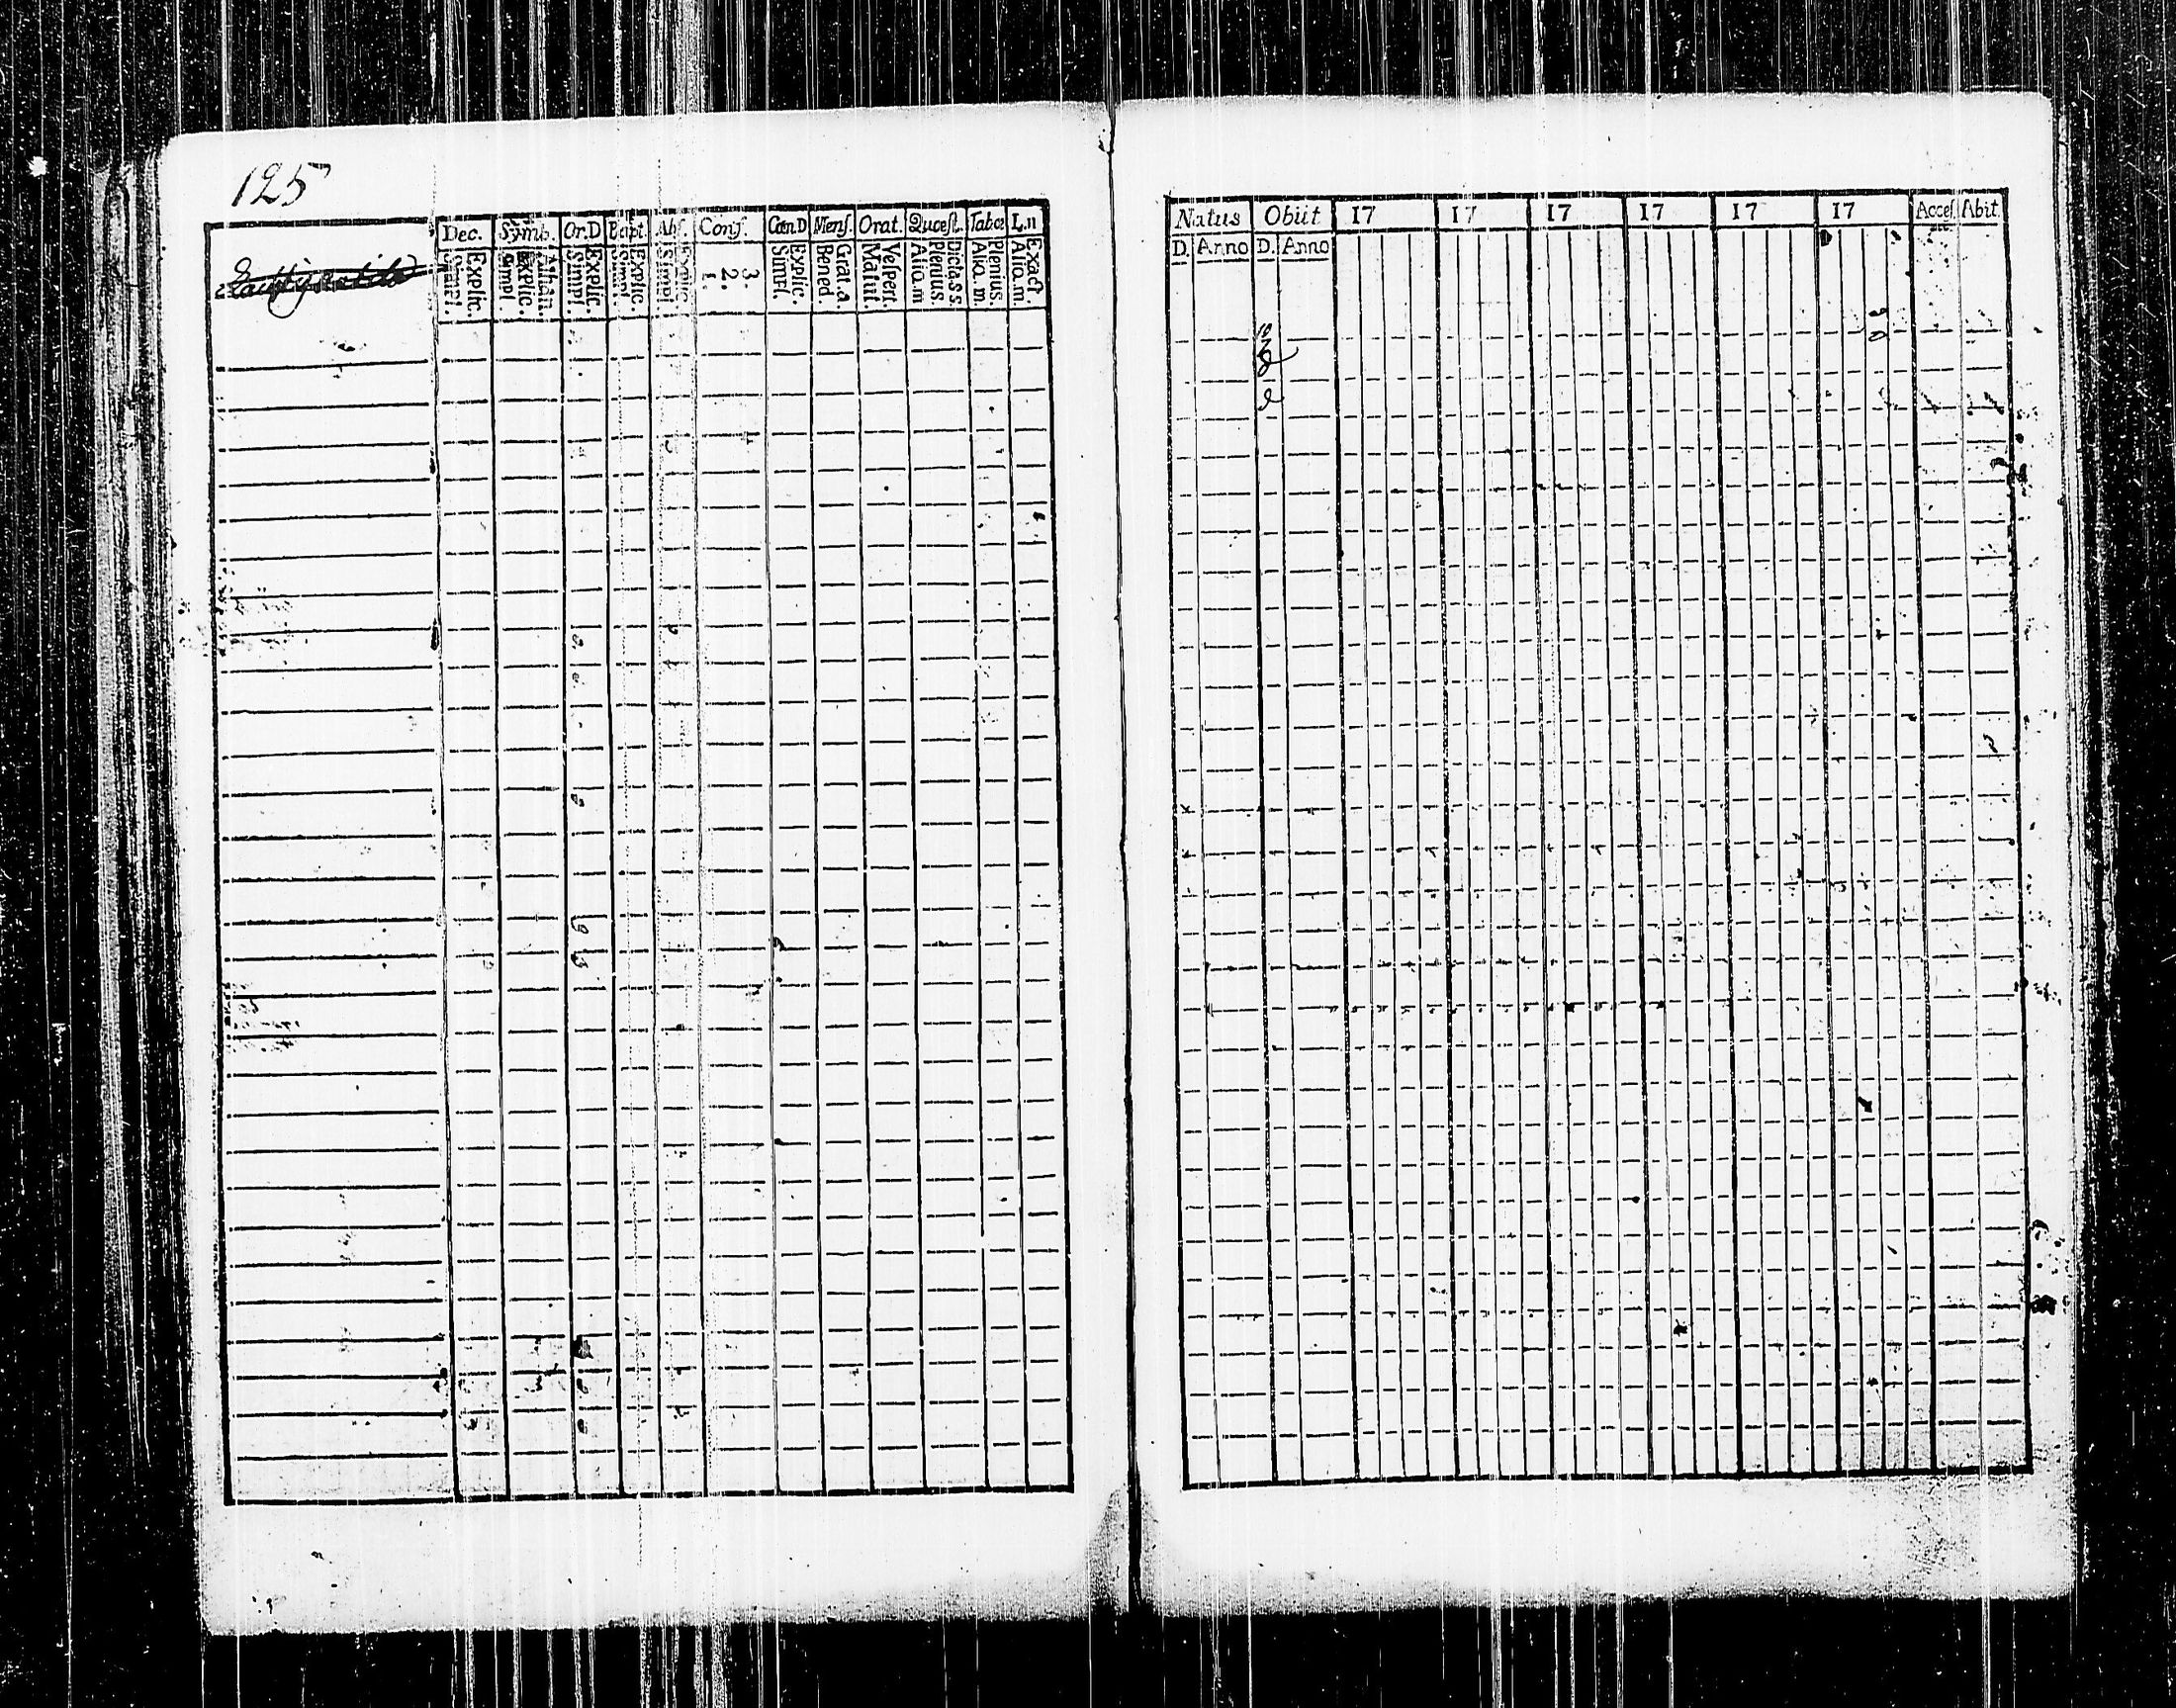 125
Dec. Symb. Or.D Bapt. Abs. Conf. Cœn.D Menſ. Orat. Quæſt. Tabœ L.n
Simpl. Explic. Simpl. Explic. Athan. Simpl. Explic. Simpl. Explic. Simpl. Explic. 1. 2. 3. Simpl. Explic. Bened. Grat.a. Matut. Veſpert. Alio.m Plenius. Dicta.s s. Alio.m. Plenius. Alio.m. Exact.
Natus Obiit 17 17 17 17 17 17 Acceſ. Abit.
D. Anno D. Anno